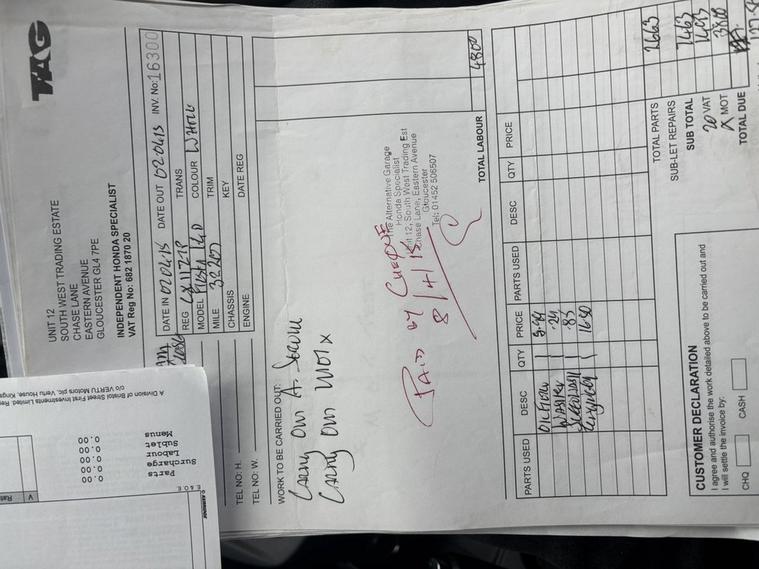 TAG
UNIT 12
SOUTH WEST TRADING ESTATE
CHASE LANE
EASTERN AVENUE
GLOUCESTER GL4 7PE
INDEPENDENT HONDA SPECIALIST
VAT Reg No: 682 1870 20
DATE IN 020415 DATE OUT 020415 INV. No: 16300
REG TRANS
MODEL Fiesta COLOUR White
MILE TRIM
CHASSIS KEY
ENGINE DATE REG
TEL NO: H.
TEL NO: W.
WORK TO BE CARRIED OUT:
Carry Out A. Service
Carry Out MOTx
PAID BY CHEQUE
8/4/15
The Alternative Garage
Honda Specialist
Unit 12, South West Trading Est
Chase Lane, Eastern Avenue
Gloucester
Tel: 01452 506507
TOTAL LABOUR 4800
PARTS USED DESC QTY PRICE PARTS USED DESC QTY PRICE
OIL FILTER 1
WASHER 1 .24
1 .85
1650
TOTAL PARTS 2663
SUB-LET REPAIRS
SUB TOTAL 7463
20 VAT 1493
x MOT
TOTAL DUE
CUSTOMER DECLARATION
I agree and authorise the work detailed above to be carried out and
I will settle the invoice by:
CHQ CASH
A Division of Bristol Street First Investments Limited. Re
c/o VERTU Motors plc, Vertu House, Kings
Parts 0.00
Surcharge 0.00
Labour 0.00
Sublet 0.00
Menus 0.00
E.&O.E.
V Rat